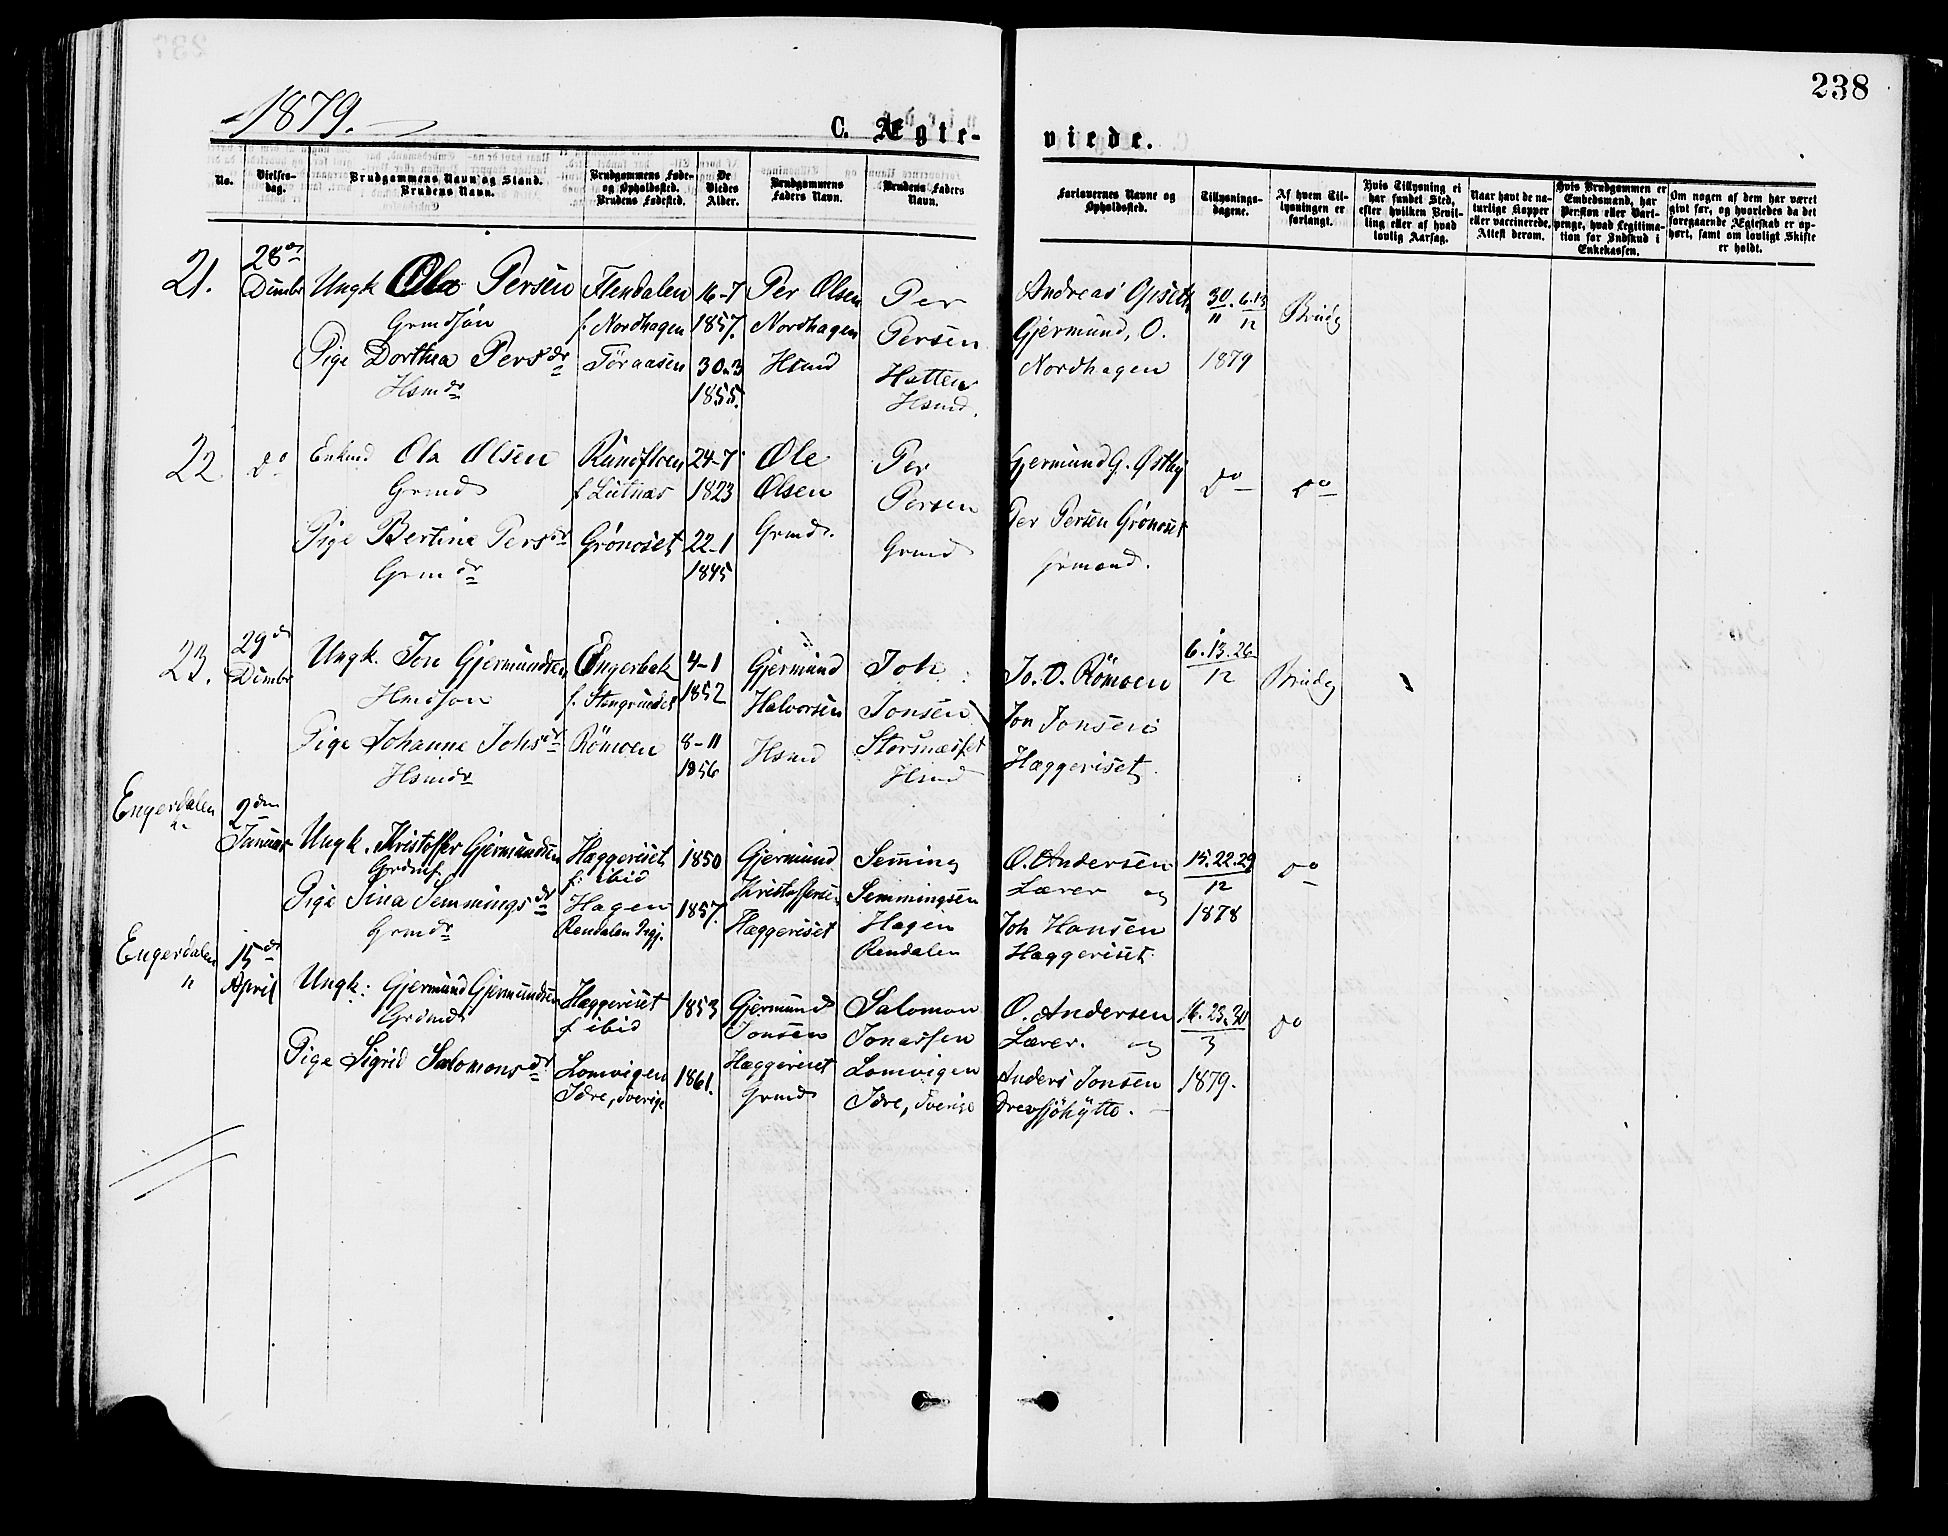 238
1879.
C. Ægte- viede.
No.
Vielses-dag.
Brudgommens Navn og Stand. Brudens Navn.
Brudgommens Føde- og Opholdssted. Brudens Fødested.
De Viedes Alder.
Brudgommens Faders Navn.
Brudens Faders Navn.
Forlovernes Navne og Opholdssted.
Tillysnings-dagene.
Af hvem Tillysningen er forlangt.
Hvis Tillysning ei har fundet Sted, efter hvilken Bevilling eller af hvad lovlig Aarsag.
Naar havt de naturlige Kopper eller vaccinerede. Attest derom.
Hvis Brudgommen er Embedsmand, har Pension eller Vartpenge, hvad Legitimation for Indskud i Enkekassen.
Om nogen af dem har været givt før, og hvorledes da det foregaaende Ægteskab er ophørt, samt om lovligt Skifte er holdt.
21.
28de Dcmbr
Ungk Ola Persen
Grmdsøn
Pige Dorthea Persdr
Hsmdr
Flendalen
f. Nordhagen
Töraasen
16-7
1857.
30-3
1855.
Per Olsen
Nordhagen
Hsmd
Per
Persen
Hatten
Hsmd.
Andreas Griseth
Gjermund, O.
Nordhagen
30/11. 6.13/12
1879
Brudg
22
Do
Enkmd Ola Olsen
Grmd
Pige Bertine Persdr
Grmdr
Rundfloen
f Lutnæs
Grönoset
24-7
1823
22-1
1845
Ole
Olsen
Grmd.
Per
Persen
Grmd
Gjermund G. Østby
Per Persen Grönoset
Grmænd.
Do
Do
23.
29de Dcmbr
Ungk. Jon Gjermundsen
Hmdsøn
Pige Johanne Johsdr
Hsmdr
Engerbak
f. Stengrundet
Römoen
4-1
1852
8-11
1856
Gjermund
Halvorsen
Hsmd
Joh
Jonsen
Storsnæsset
Hsmd
Jo. O. Römoen
Jon Jonsen
Hæggeriset.
6.13.26/12
Brudg
Engerdalen
2den Januar
Ungk. Kristoffer Gjermundsen
Grdmf.
Pige Sina Semmingsdr
Grmdr
Hæggeriset
f. ibid
Hagen
Rendalen Prgj.
1850
1857.
Gjermund
Kristoffersen
Hæggeriset
Semming
Semmingsen
Hagen
Rendalen
O. Andersen
Lærer og
Joh Hansen
Hæggeriset.
15.22.29/12
1878
Do
Engerdalen
"
15de April
Ungk: Gjermund Gjermundsen
Grdmd
Pige Sigrid Salomonsdr
Hæggeriset
f ibid
Lomvigen
Idre, Sverige
1853
1861.
Gjermund
Jonsen
Hæggeriset
Grmd
Salomon
Jonassen
Lomvigen
Idre, Sverige
O. Andersen
Lærer. og
Anders Jonsen
Drevsjöhytte.
16.23.30/3
1879.
Do